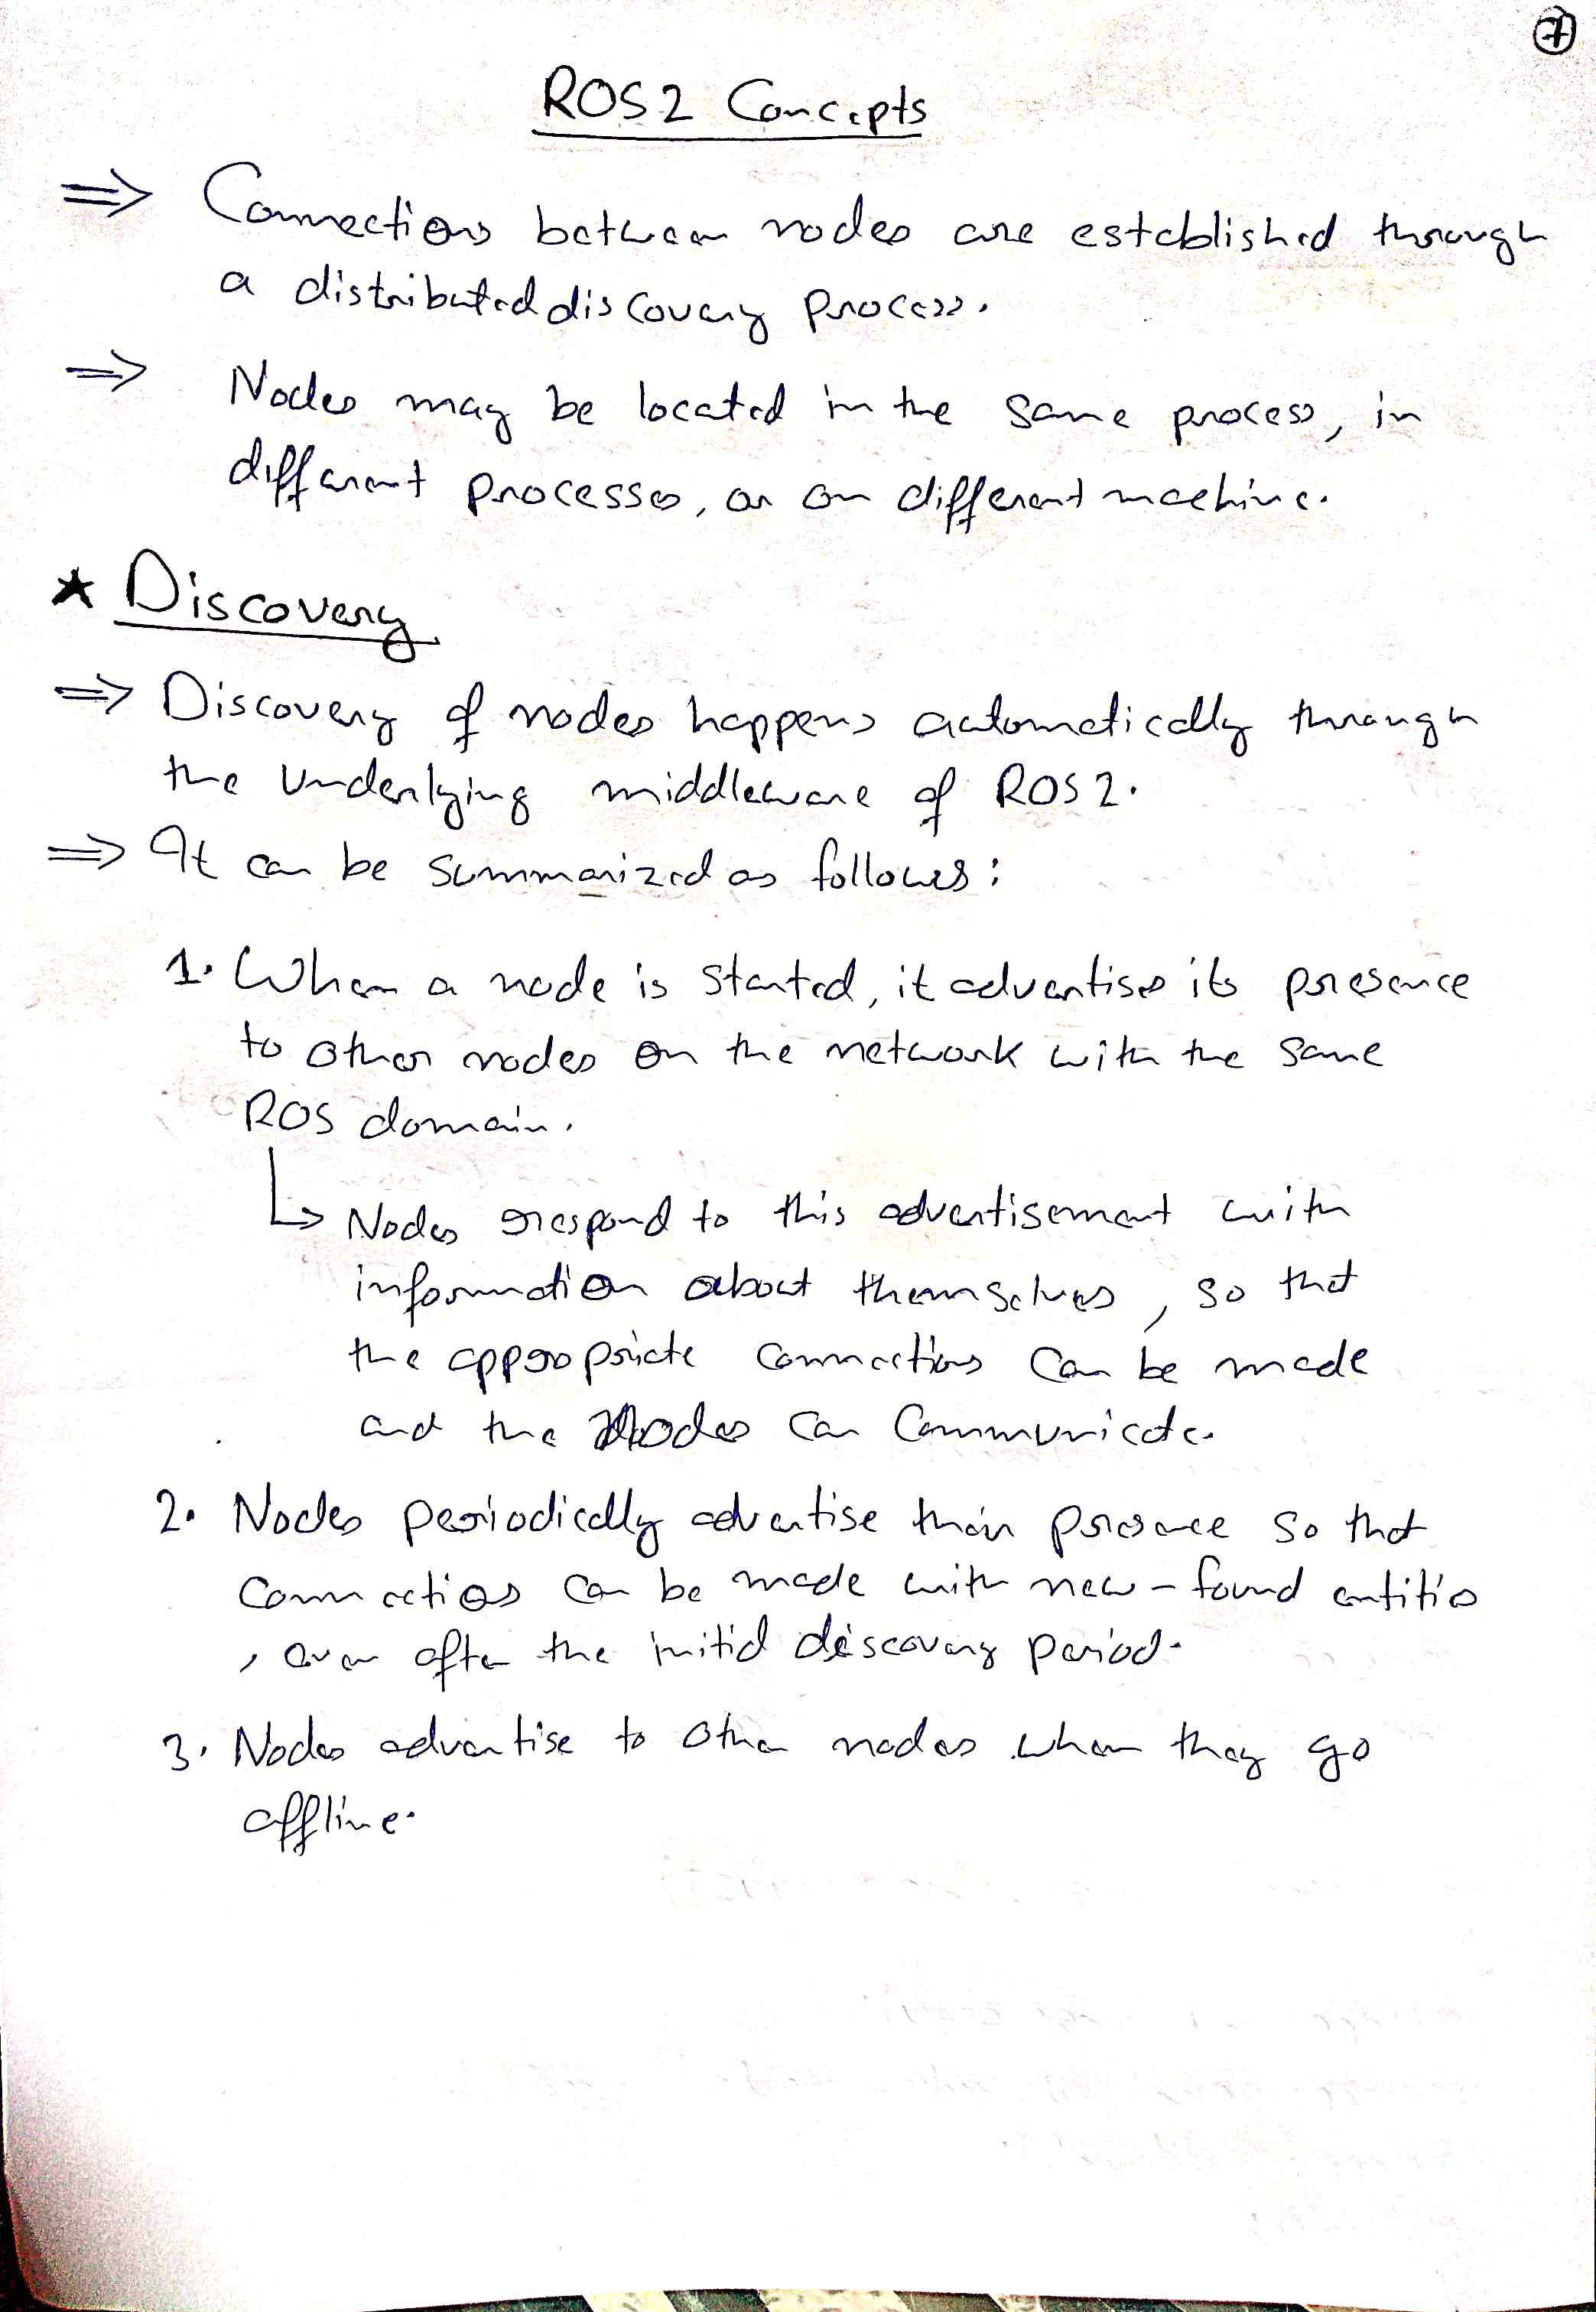 7
ROS2 Concepts
⇒ Connections between nodes are established through
a distributed discovery process.
⇒ Nodes may be located in the same process, in
different processes, or on different machine.
★ Discovery
⇒ Discovery of nodes happens automatically through
the underlying middleware of ROS2.
⇒ It can be summarized as follows:
1. When a node is started, it advertises its presence
to other nodes on the network with the same
ROS domain.
↳ Nodes respond to this advertisement with
information about themselves, so that
the appropriate connections can be made
and the nodes can communicate.
2. Nodes periodically advertise their presence so that
connections can be made with new-found entities
, even after the initial discovery period.
3. Nodes advertise to other nodes when they go
offline.